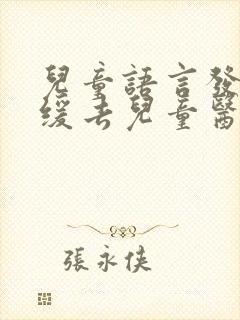 兒童語言發
緩去兒童醫
張永俠